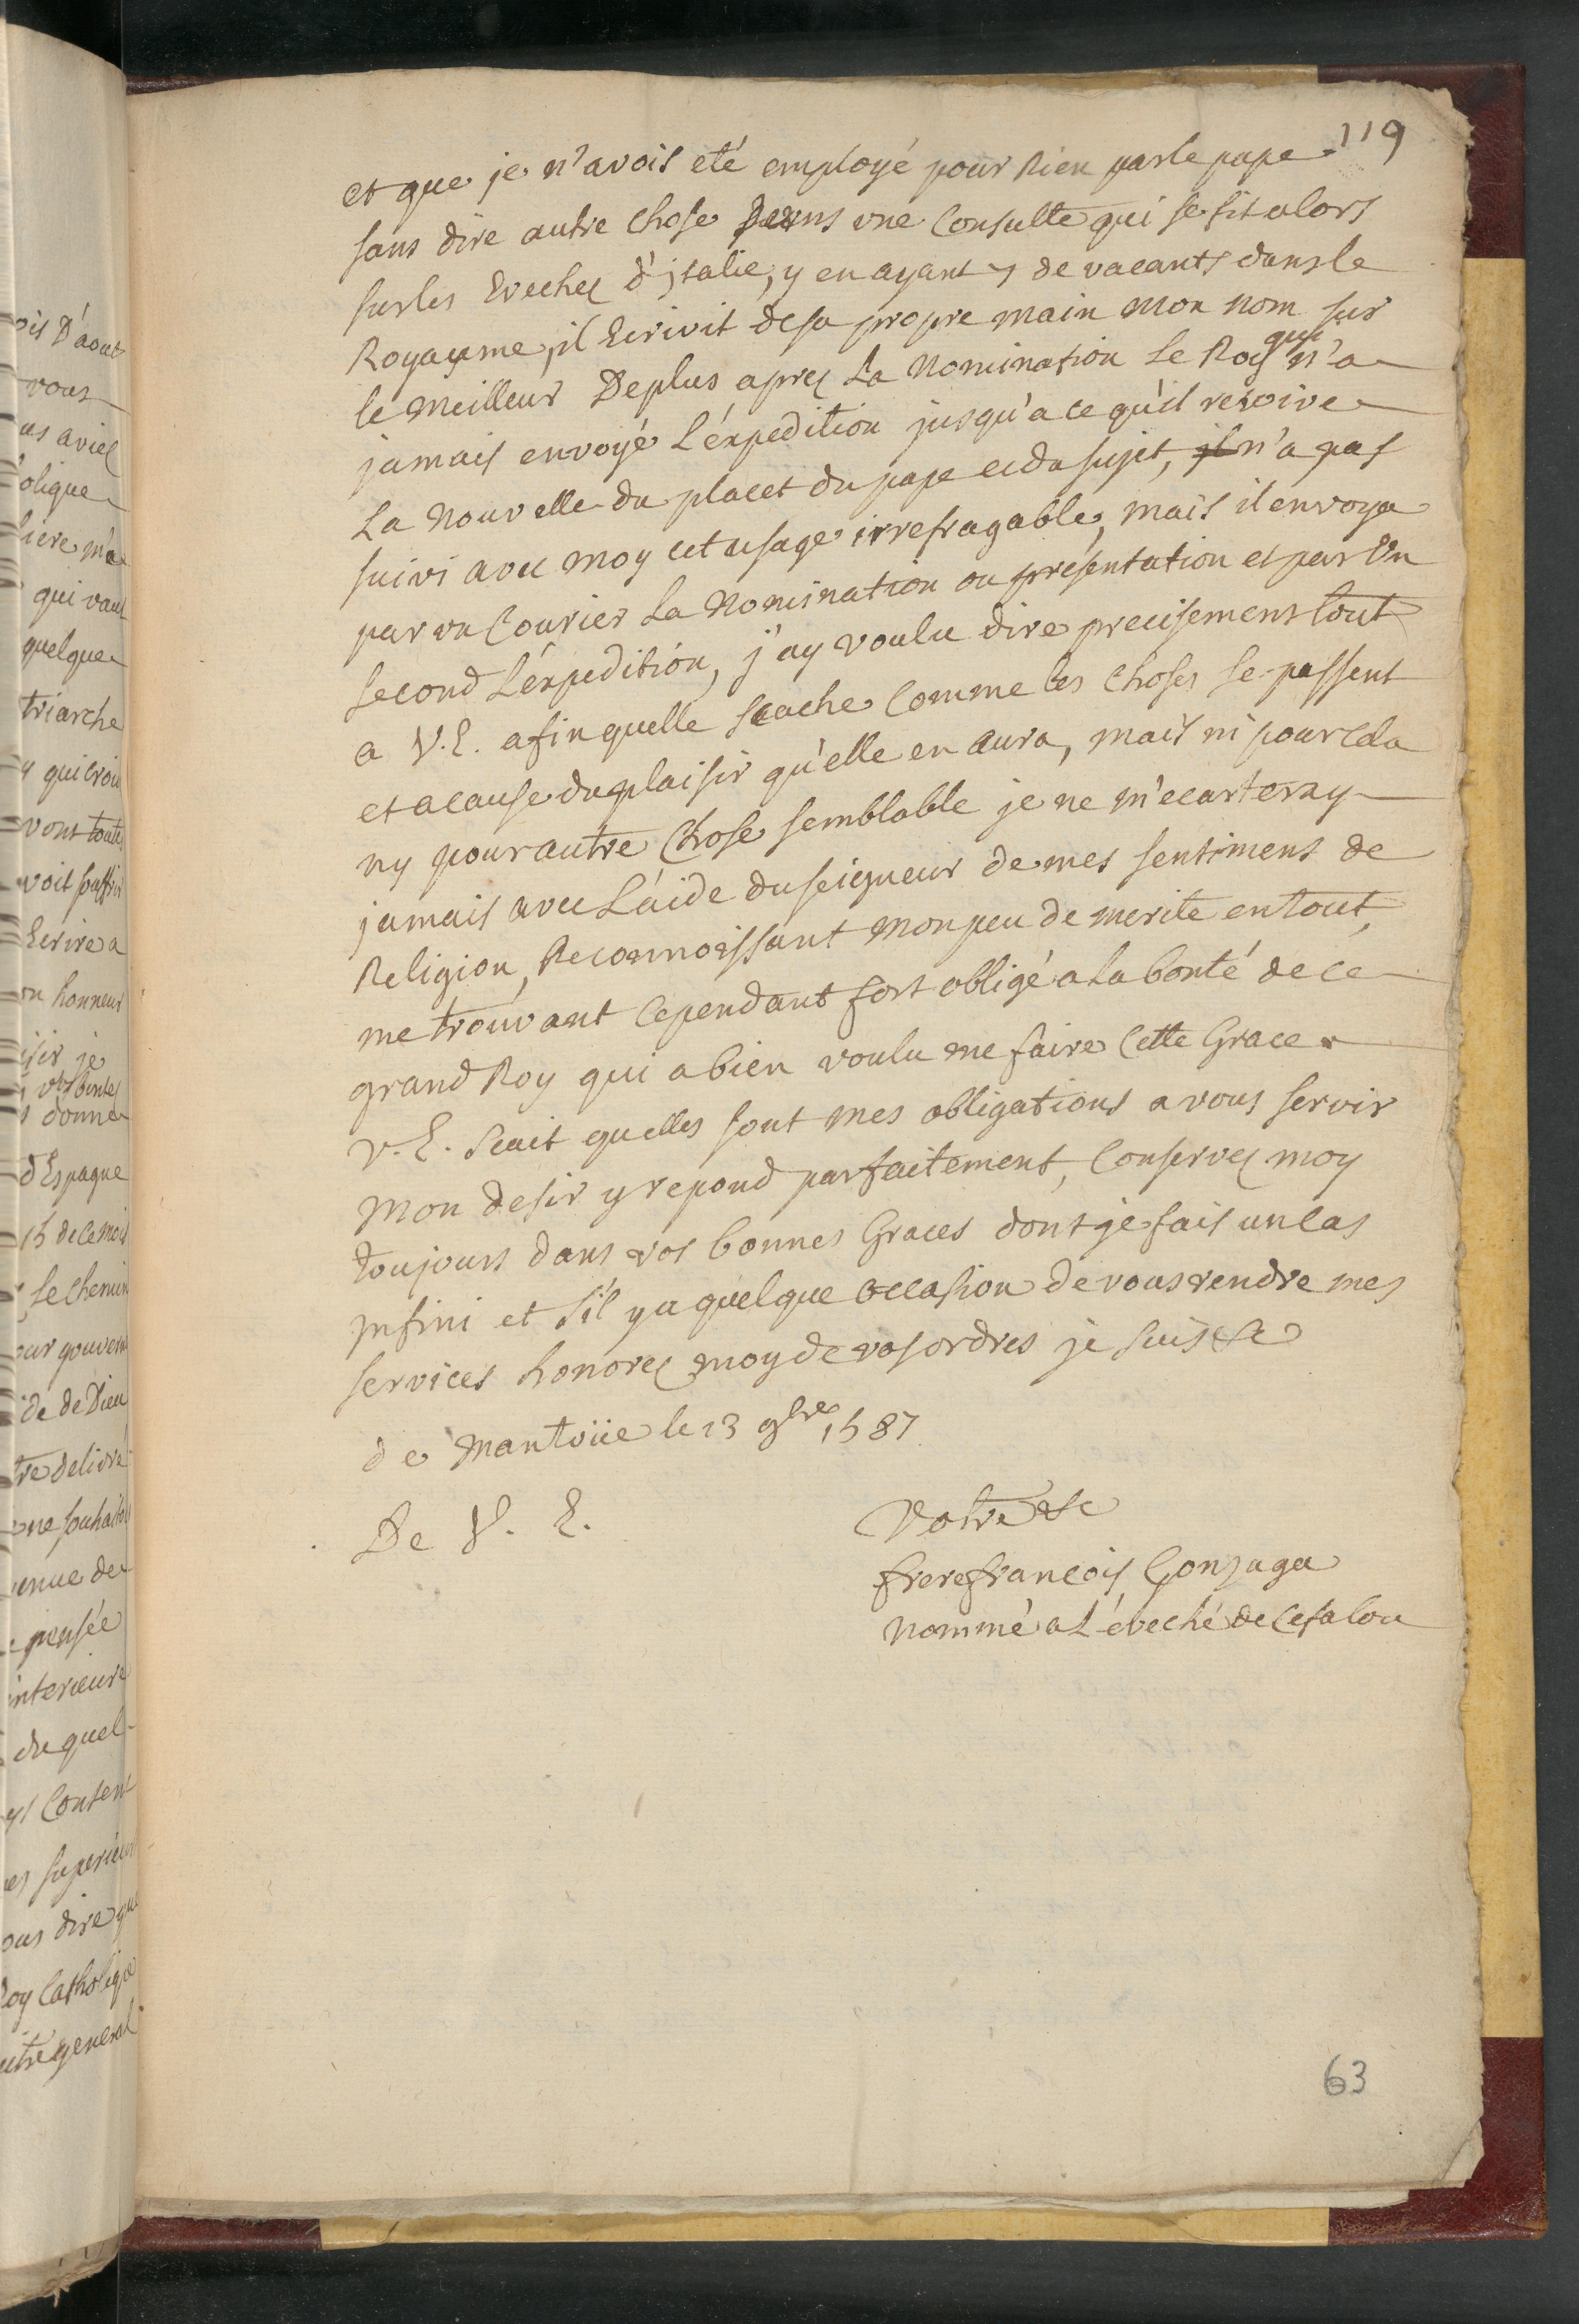 119
et que je n'avois eté employé pour Rien par le pape
sans dire autre chose Dans une Consulte qui se fit alors
sur les Evechez d'jtalie, y en ayant 7 de vacants dans le
Royaume, il Ecrivit de sa propre main mon nom sur
le meilleur Deplus aprez La Nomination Le Roy qui n'a
jamais envoyé L'éxpedition jusqu'a ce qu'il reçoive
La Nouvelle du placet du pape et du sujet, il n'a pas
suivi avec moy cet usage irrefragable, mais il envoya
par un Courier La Nomination ou présentation et par Un
second L'éxpedition, j'ay voulu dire precisement tout
a V. E. afin quelle scache Comme les choses se passent
et a cause du plaisir qu'elle en aura, mais ni pour cela
ny pour autre Chose semblable je ne m'ecarteray
jamais avec L'aide du seigneur de mes sentimens de
Religion, Reconnoissant mon peu de merite en tout,
me trouvant Cependant fort obligé a la bonté de ce
grand Roy qui a bien voulu me faire Cette Grace
V. E. scait quelles sont mes obligations a vous servir
mon desir y repond parfaitement, Conservez moy
toujours dans vos bonnes Graces dont je fais un cas
jnfini et s'il y a quelque occasion de vous rendre mes
services honorez moy de vos ordres je suis &c
de Mantoüe le 13 9bre 1587
De V. E.
Votre &c
frere françois Gonzaga
Nommé a L'éveché de Cefalou
63
ois D'aout
vous
us aviez
olique
liere m'a
qui vaut
quelque
triarche
y qui croit
vont toute
voit
Ecrire a
on honneur
isir je
donne
d'Espagne
15 de ce mois
Le Chemin
our gouverner
ide de Dieu
tre delivré
enue de
pensée
interieure
du quel
Content
es superieurs
ous dire que
Roy Catholique
utre general